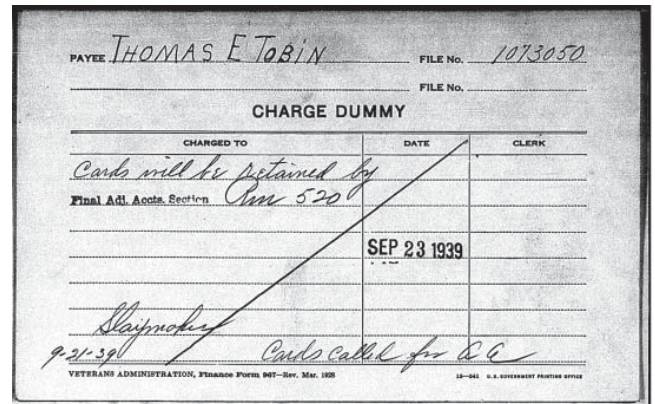 PAYEE THOMAS E TOBIN FILE No. 1073050
FILE No.
CHARGE DUMMY
CHARGED TO DATE CLERK
Cards will be retained by
Final Adj. Accts. Section Rm 520
SEP 23 1939
Slaymaker
9-21-39 Cards called for
VETERANS ADMINISTRATION, Finance Form 967—Rev. Mar. 1928 U.S. GOVERNMENT PRINTING OFFICE